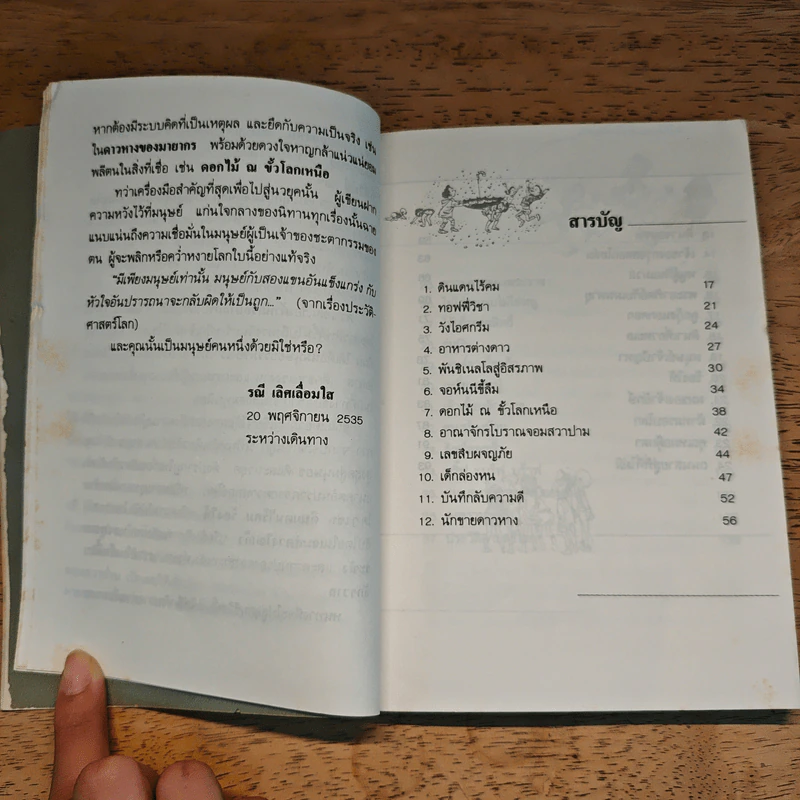 หากต้องมีระบบคิดที่เป็นเหตุผล และยึดกับความเป็นจริง เช่น
ในดาวหางของมายากร พร้อมด้วยดวงใจหาญกล้าแน่วแน่ยอม
พลีตนในสิ่งที่เชื่อ เช่น ดอกไม้ ณ ขั้วโลกเหนือ
ทว่าเครื่องมือสำคัญที่สุดเพื่อไปสู่นวยุคนั้น ผู้เขียนฝาก
ความหวังไว้ที่มนุษย์ แก่นใจกลางของนิทานทุกเรื่องนั้นฉาย
แนบแน่นถึงความเชื่อมั่นในมนุษย์ผู้เป็นเจ้าของชะตากรรมของ
ตน ผู้จะพลิกหรือคว่ำหงายโลกใบนี้อย่างแท้จริง
"มีเพียงมนุษย์เท่านั้น มนุษย์กับสองแขนอันแข็งแกร่ง กับ
หัวใจอันปรารถนาจะกลับผิดให้เป็นถูก..." (จากเรื่องประวัติ-
ศาสตร์โลก)
และคุณนั้นเป็นมนุษย์คนหนึ่งด้วยมิใช่หรือ?
รณี เลิศเลื่อมใส
20 พฤศจิกายน 2535
ระหว่างเดินทาง
สารบัญ
1. ดินแดนไร้คม 17
2. ทอฟฟี่วิชา 21
3. วังไอศกรีม 24
4. อาหารต่างดาว 27
5. พันชิเนลโลสู่อิสรภาพ 30
6. จอห์นนีขี้ลืม 34
7. ดอกไม้ ณ ขั้วโลกเหนือ 38
8. อาณาจักรโบราณจอมสวาปาม 42
9. เลขสิบผจญภัย 44
10. เด็กล่องหน 47
11. บันทึกลับความดี 52
12. นักขายดาวหาง 56